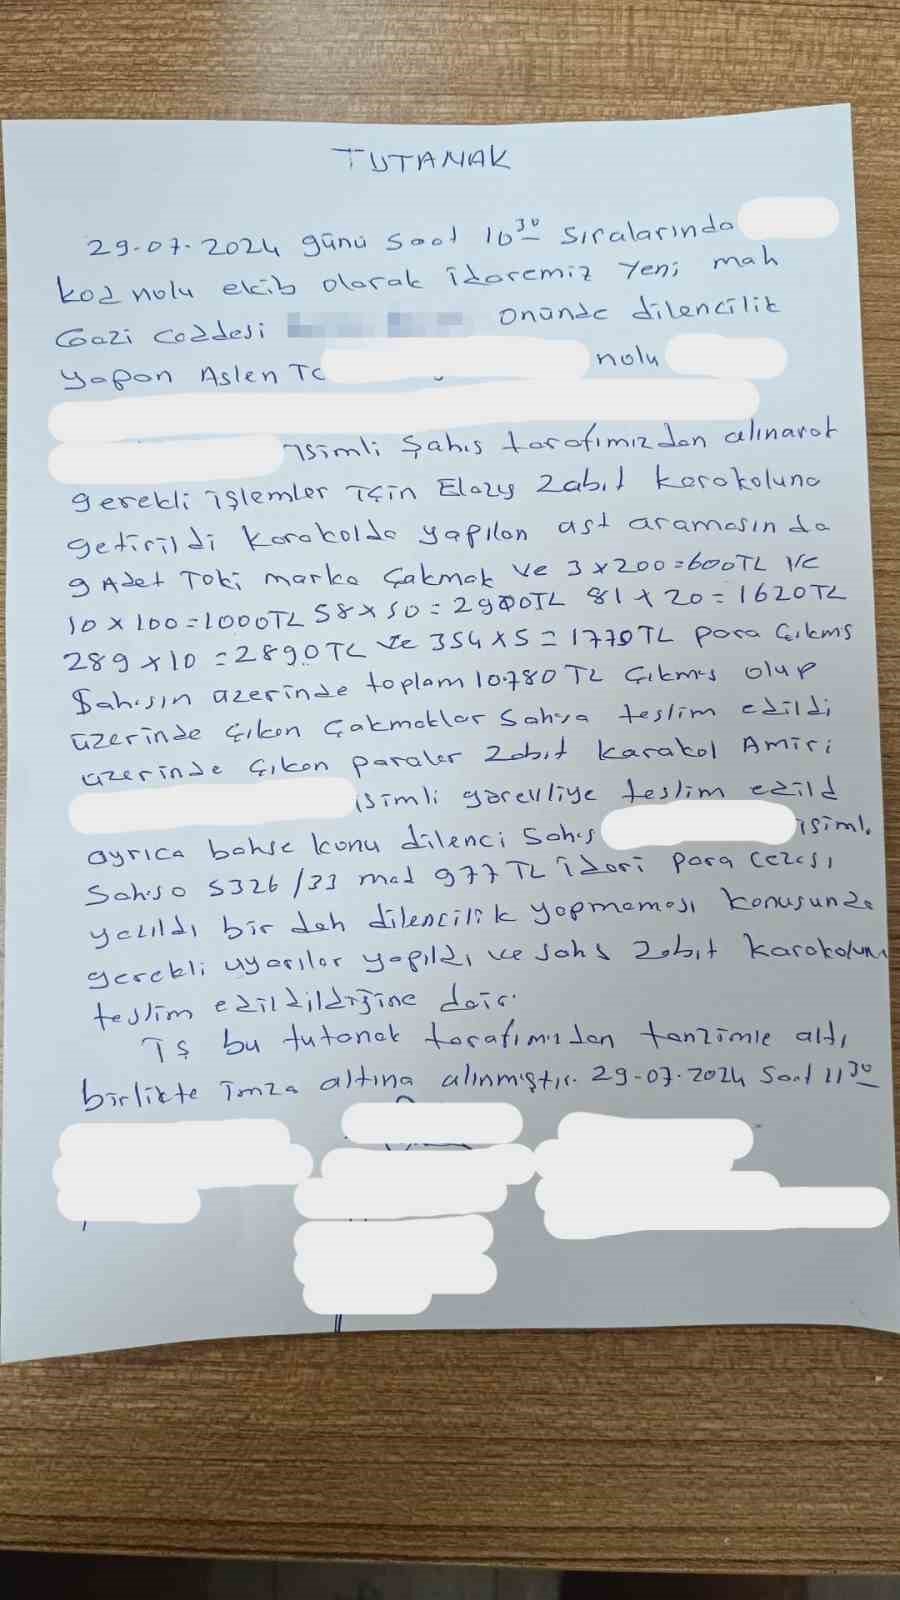 TUTANAK
29-07-2024 günü saat 10³⁰ sıralarında
kod nolu ekib olarak idaremiz Yeni mah
Gazi Caddesi önünde dilencilik
yapan Aslen TC nolu
isimli şahıs tarafımızdan alınarak
gerekli işlemler için Elazığ Zabıt karokoluna
getirildi karokolda yapılan üst aramasında
9 Adet Toki marka Çakmak ve 3x200=600TL ve
10x100=1000TL 58x50=2900TL 81x20=1620TL
289x10=2890TL ve 354x5=1770TL para çıkmş
Şahısın üzerinde toplam 10.780 TL çıkmış olup
üzerinde çıkan çakmaklar şahısa teslim edildi
üzerinde çıkan paralar Zabıt karakol Amiri
isimli görevliye teslim edild
ayrıca bahse konu dilenci şahıs isiml.
şahısa 5326/33 mad 977 TL idari para cezası
yazıldı bir dah dilencilik yapmaması konusunda
gerekli uyarılar yapıldı ve şahs Zabıt karokolum
teslim edildildiğine dair.
İş bu tutanak tarafımızdan tanzimle altı
birlikte imza altına alınmıştır. 29-07-2024 Saat 11³⁰